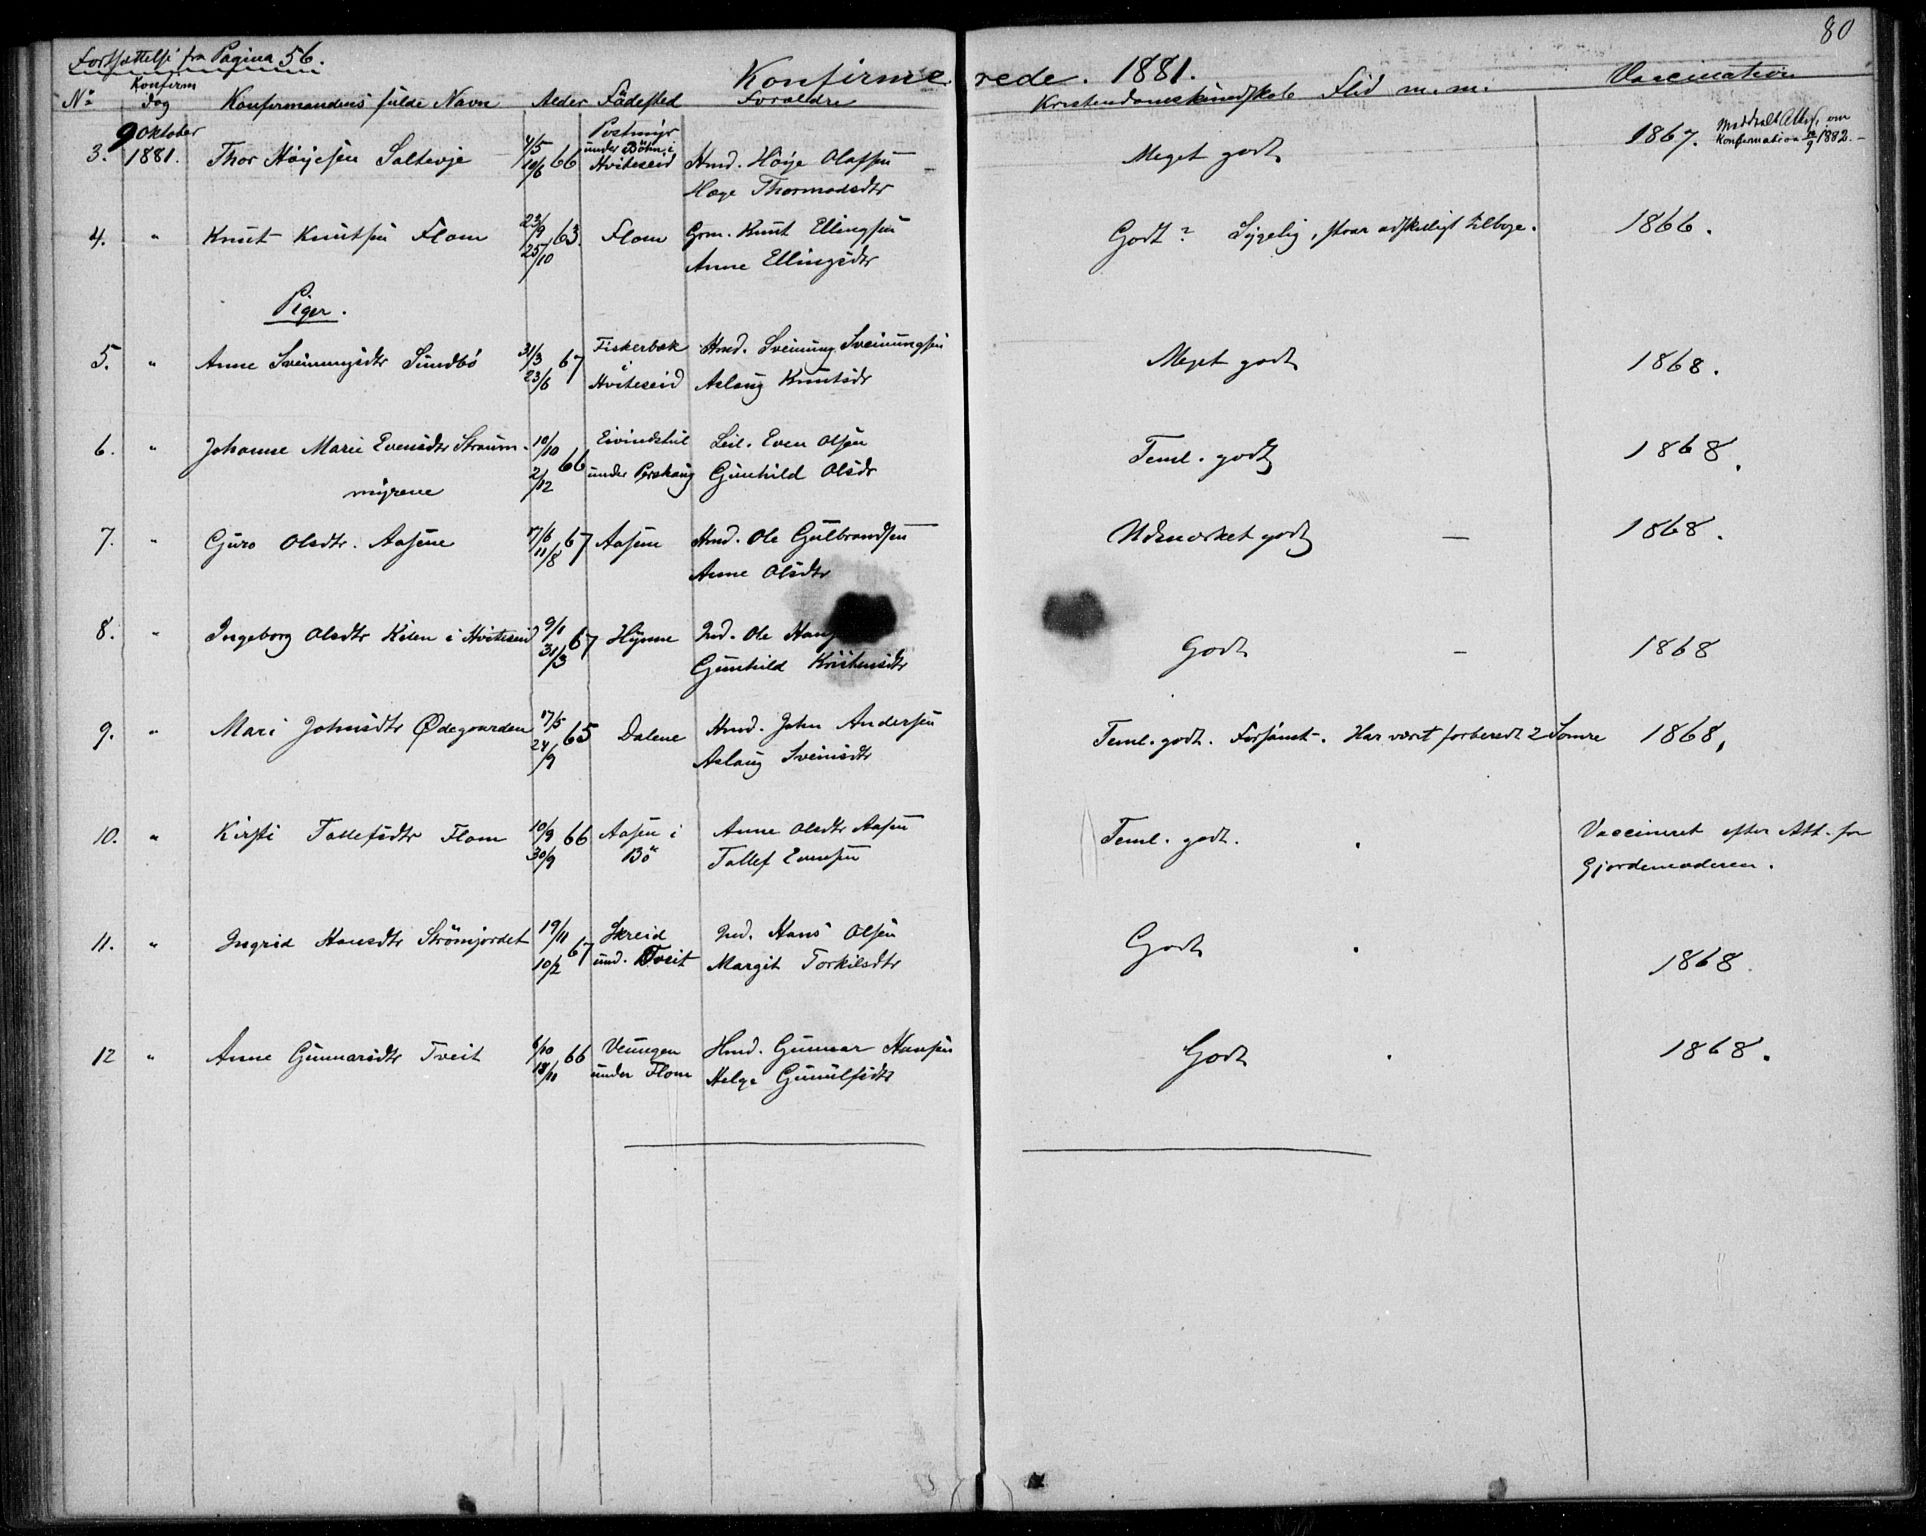 80
Fortsættelse fra Pagina 56.
Konfirmerede. 1881.
No Konfirm dag Konfirmandens fulde Navn Alder Födested Foræeldre Kristendomskundskab Flid m.m. Vaccination
3. 9 Oktober 1881. Thor Höyesen Saltevje 4/5 10/6 66 Postmyr under Böhn i Hviteseid Hmd. Höye Olafsen Meget godt 1867. Meddelt Attest om Konfirmation 1882.
Hæge Thormodsdtr
4. " Knut Knutsen Flom 22/9 25/10 63. Flom Grm. Knut Ellingsen Godt? Sygelig, staar adskilligt tilbage. 1866.
Anne Ellingsdtr
Piger.
5. " Anne Sveinungsdtr Sundbö 31/3 23/6 67 Fiskerbæk i Hviteseid Hmd. Sveinung Sveinungsen Meget godt 1868.
Aslaug Knutsdr
6. " Johanne Marie Evensdtr Straum- 10/10 2/12 66 Eivindshül under Leil. Even Olsen Teml. godt 1868.
myrene Gunhild Olsdr
7. " Guro Olsdtr. Aasene 17/6 11/8 67 Aasene Hmd. Ole Gulbrandsen Udmærket godt — 1868.
Anne Olsdtr
8. " Ingeborg Olsdtr Kilen i Hviteseid 9/1 31/3 67 Hynne Ind. Ole Godt — 1868
Gunhild Kristensdtr
9. " Mari Johnsdtr Ødegaarden 17/5 24/9 65 Dalene Hmd. John Andersen Teml. godt. Forsömt. Har været forberedt 2 Somre 1868.
Aslaug Sveinsdtr
10. " Kirsti Tollefsdtr Flom 10/9 30/9 66 Aasen i Bö Anne Olsdtr Aasen Teml. godt. Vaccineret efter Att. fra
Tollef Evensen Gjordemoderen.
11. " Ingrid Hansdtr Strömjordet 19/11 10/2 67 Skreid und. Tveit Ind. Hans Olsen Godt 1868.
Margit Torkilsdtr
12 " Anne Gunnarsdtr Tveit 6/10 18/11 66 Veungen under Flom Hmd. Gunnar Hansen Godt 1868.
Helge Gunulfsdtr